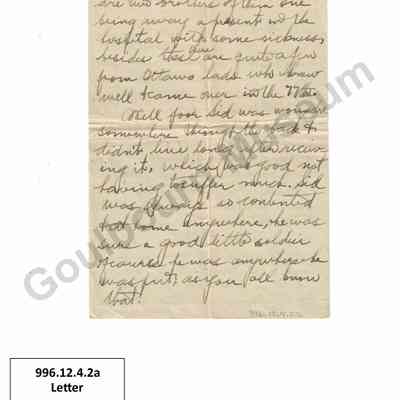 are two brothers of them one
being away at present in the
hospital with some sickness,
besides these are quite a few
from Ottawa lads who I know
well & came over in the 77th.
Well poor Sid was wounded
somewhere through the back &
didn't live long after receiv-
ing it, which was good not
having to suffer much. Sid
was always so contented
at home anywhere, & he was
sure a good little soldier
of course he was anywhere he
was put, as you all know
that.
996.12.4.2a
Goulbourn Museum
996.12.4.2a
Letter